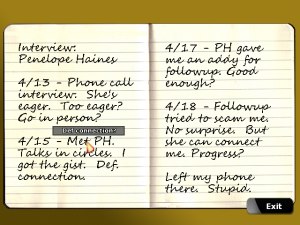 Interview:
Penelope Haines
4/13 - Phone call
interview. She's
eager. Too eager?
Go in person?
Def connections
4/15 - Met PH.
Talks in circles. I
got the gist. Def.
connection.
4/17 - PH gave
me an addy for
followup. Good
enough?
4/18 - Followup
tried to scam me.
No surprise. But
she can connect
me. Progress?
Left my phone
there. Stupid.
Exit